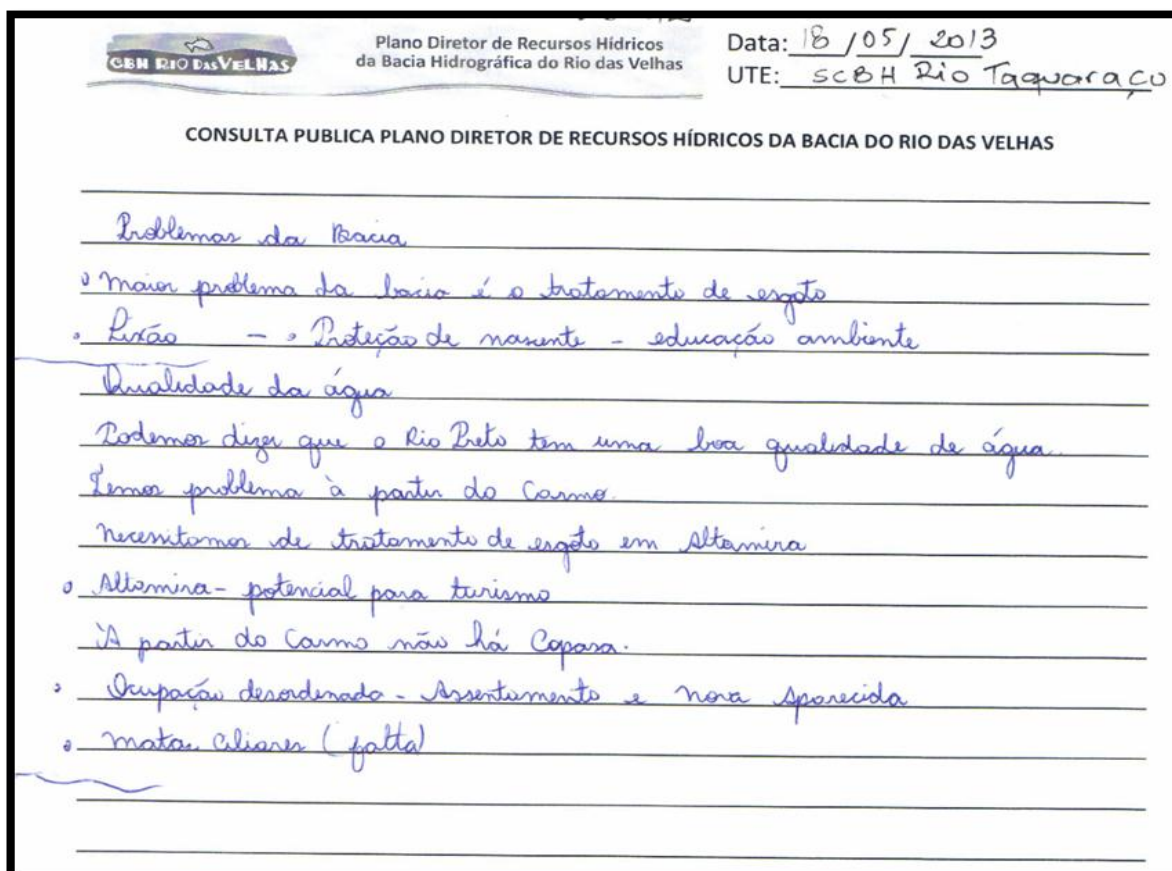 CBH RIO DAS VELHAS
Plano Diretor de Recursos Hídricos
da Bacia Hidrográfica do Rio das Velhas
Data: 18/05/2013
UTE: SCBH Rio Taquaraçu
CONSULTA PUBLICA PLANO DIRETOR DE RECURSOS HÍDRICOS DA BACIA DO RIO DAS VELHAS
Problemas da Bacia
Maior problema da bacia é o tratamento de esgoto
Lixão - Proteção de nascente - educação ambiente
Qualidade da água
Podemos dizer que o Rio Preto tem uma boa qualidade de água.
Temos problema à partir do Carmo.
Necessitamos de tratamento de esgoto em Altamira
Altamira - potencial para turismo
À partir do Carmo não há Copasa.
Ocupação desordenada - Assentamento e Nova Aparecida
Matas Ciliares (falta)